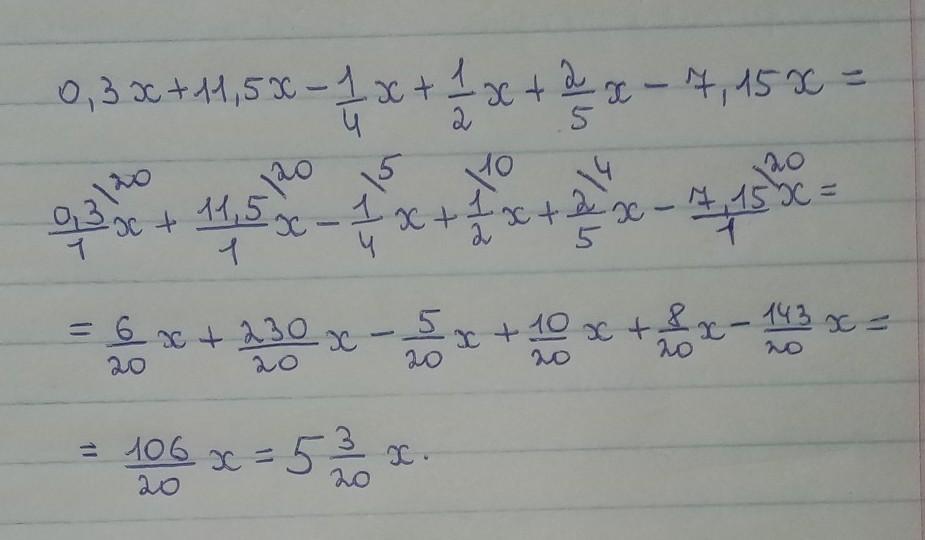 0,3x + 11,5x - 1/4 x + 1/2 x + 2/5 x - 7,15x =
0,3\20/1 x + 11,5\20/1 x - 1\5/4 x + 1\10/2 x + 2\4/5 x - 7,15\20/1 x =
= 6/20 x + 230/20 x - 5/20 x + 10/20 x + 8/20 x - 143/20 x =
= 106/20 x = 5 3/20 x.